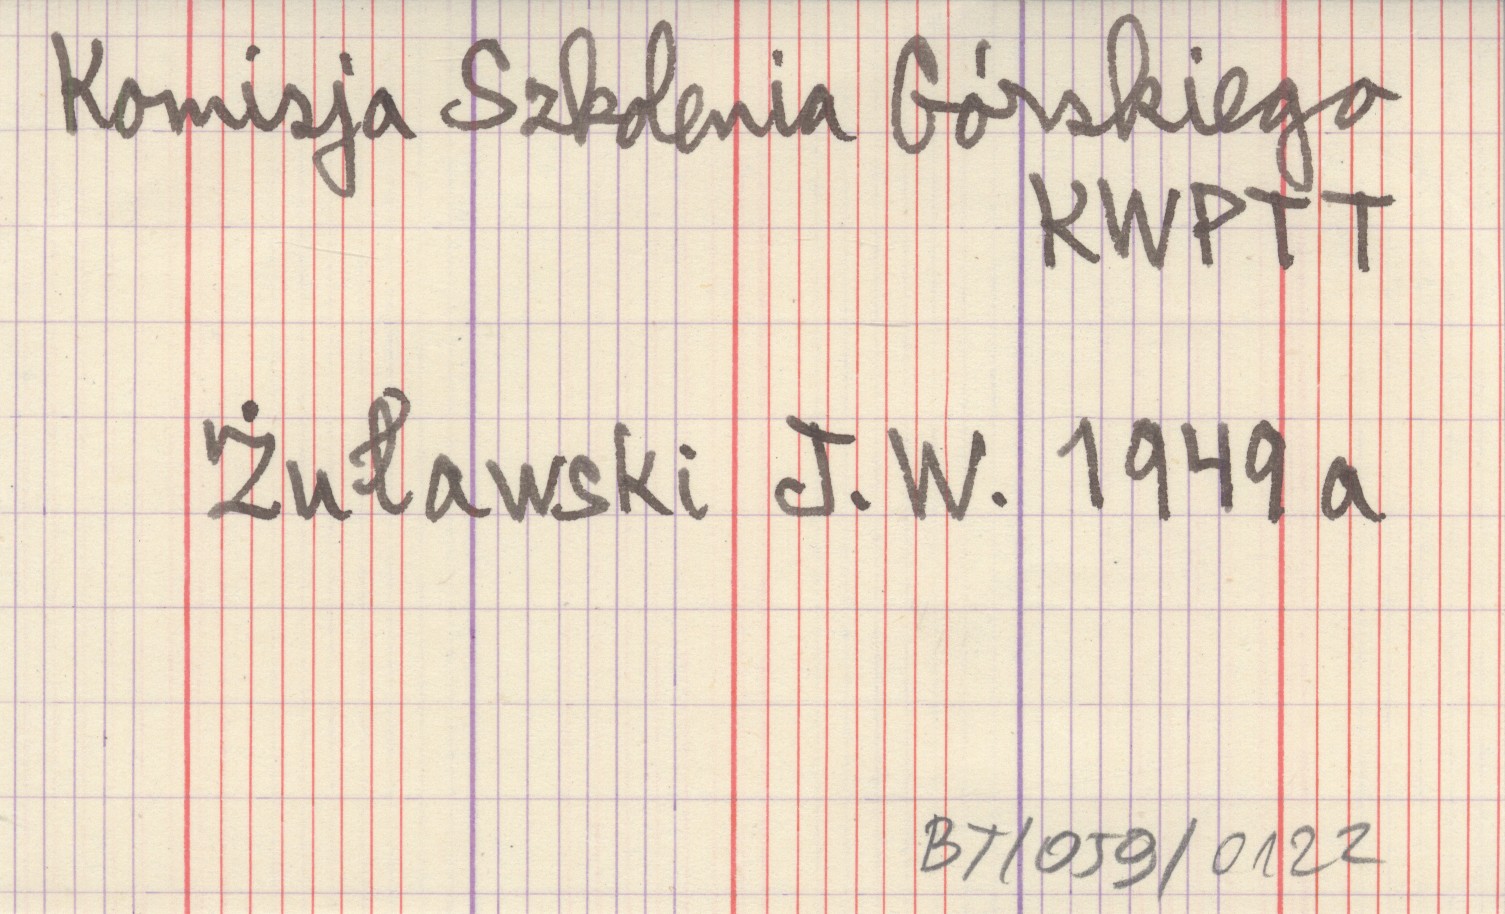 Komisja Szkolenia Górskiego
KWPTT
Żuławski J.W. 1949 a
BT/059/0122